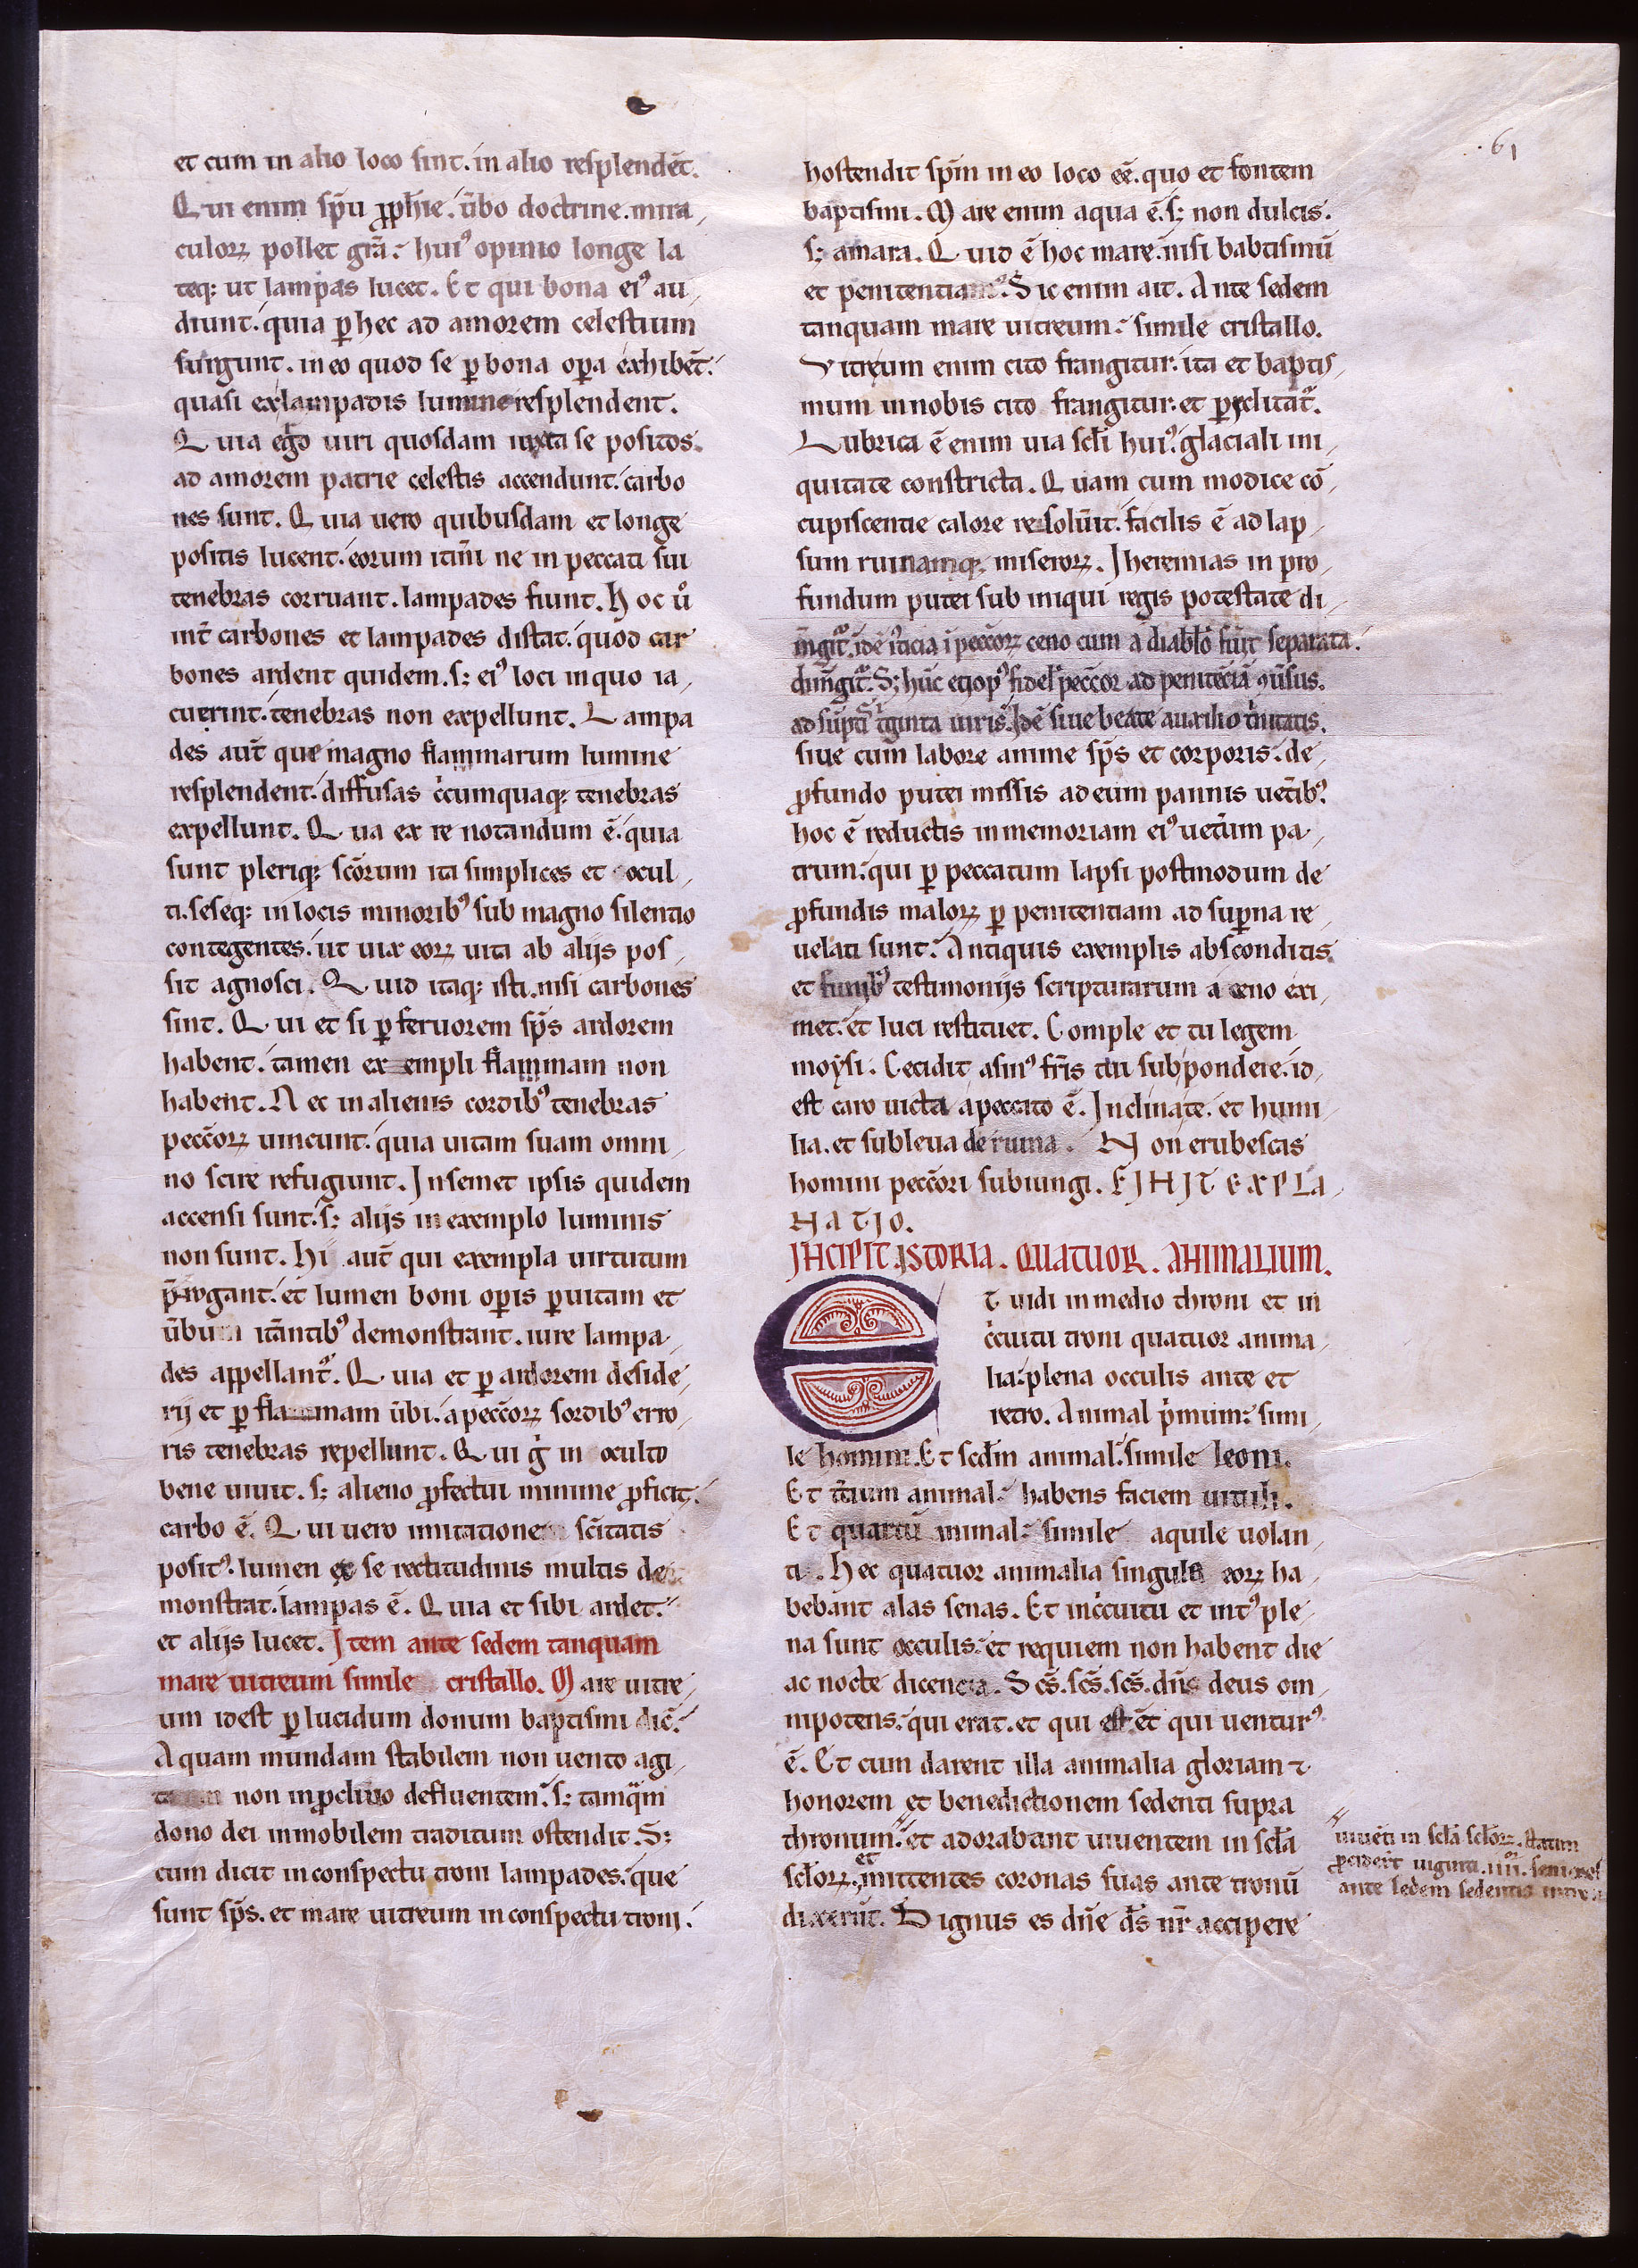 61
et cum in alio loco sint. in alio resplendēt.
Qui enim sp̄u ꝓph̄ie. ūbo doctrine. mira
culoꝝ pollet gr̄a. huiꝰ opinio longe la
teqꝫ ut lampas lucet. Et qui bona eiꝰ au
diunt. quia ꝑ hec ad amorem celestium
surgunt. in eo quod se ꝑ bona oꝑa exhibēt.
quasi ex lampadis lumine resplendent.
Quia ego uiri quosdam iuxta se positos.
ad amorem patrie celestis accendunt. carbo
nes sunt. Quia uero quibusdam et longe
positis lucent. eorum itin̄i ne in peccati sui
tenebras corruant. lampades fiunt. Hoc ū
int̄ carbones et lampades distat. quod car
bones ardent quidem. sꝫ eiꝰ loci in quo ia
cuerint. tenebras non expellunt. Lampa
des aut̄ que magno flammarum lumine
resplendent. diffusas c̉cumquaqꝫ tenebras
expellunt. Qua ex re notandum ē. quia
sunt pleriqꝫ sc̄orum ita simplices et ocul
ti. seseqꝫ in locis minoribꝰ sub magno silentio
contegentes. ut uix eoꝝ uita ab alijs pos
sit agnosci. Quid itaqꝫ isti. nisi carbones
sint. Qui et si ꝑ feruorem sp̄s ardorem
habent. tamen exempli flammam non
habent. Nec in alienis cordibꝰ tenebras
pecc̄oꝝ uincunt. quia uitam suam omni
no scire refugiunt. Insemet ipsis quidem
accensi sunt. sꝫ alijs in exemplo luminis
non sunt. Hi aut̄ qui exempla uirtutum
p̄rogant. et lumen boni oꝑis ꝑ uitam et
ūbum itāntibꝰ demonstrant. iure lampa
des appellant̄. Quia et ꝑ ardorem deside
rij et ꝑ flammam ūbi. a pecc̄oꝝ sordibꝰ erro
ris tenebras repellunt. Qui g̉ in oculto
bene uiuit. sꝫ alieno ꝓfectui minime ꝓficit.
carbo ē. Qui uero imitatione sc̄itatis
positꝰ. lumen ex se rectitudinis multis de
monstrat. lampas ē. Quia et sibi ardet.
et alijs lucet. Item ante sedem tanquam
mare uitreum simile cristallo. Mare uitre
um idest ꝑlucidum donum baptismi dic̄.
Aquam mundam stabilem non uento agi
non in ꝓcliuo defluentem. sꝫ tamq̄m
dono dei inmobilem traditum ostendit. Sꝫ
cum dicit in conspectu troni lampades. que
sunt sp̄s. et mare uitreum in conspectu troni.
hostendit sp̄m in eo loco eē. quo et fontem
baptismi. Mare enim aqua ē. sꝫ non dulcis.
sꝫ amara. Quid ē hoc mare. nisi babtismū
et penitentiam. Sic enim ait. Ante sedem
tanquam mare uitreum. simile cristallo.
Vitreum enim cito frangitur. ita et baptis
mum in nobis cito frangitur. et ꝑiclitat̄.
Lubrica ē enim uia scl̄i huiꝰ. glaciali ini
quitate constricta. Quam cum modice cō
cupiscentie calore resolūit. facilis ē ad lap
sum ruinamqꝫ miseroꝝ. Iheremias in pro
fundum putei sub iniqui regis potestate di
mgit̄. idē iꝰticia ī pecc̄oꝝ ceno cum a diablo fuīt separata.
dimgit̄. Sꝫ hūc etiopꝰ fidel̄ pecc̄or ad penitēciā ꝯūsus.
ad sūpti triginta uiris. Idē siue beate auxilio trinitatis.
siue cum labore anime sp̄s et corporis. de
ꝓfundo putei missis ad eum pannis uetibꝰ.
hoc ē reductis in memoriam eiꝰ uetūm pa
trum. qui ꝑ peccatum lapsi postmodum de
ꝓfundis maloꝝ ꝑ penitentiam ad suꝑna re
uelati sunt. Antiquis exemplis absconditis
et funibꝰ testimonijs scripturarum a ceno exi
met. et luci restituet. Comple et tu legem
moysi. Cecidit asinꝰ fr̄is tui sub pondere. id
est caro uicta a peccato ē. Inclinate. et humi
lia. et subleua de ruina. Non erubescas
homini pecc̄ori subiungi. FINIT EXPLA
NATIO.
INCIPIT ISTORIA. QUATUOR. ANIMALIUM.
Et uidi in medio throni et in
c̉cuitu troni quatuor anima
lia. plena occulis ante et
retro. Animal p̉mum. simi
le homini. Et scd̄m animal. simile leoni.
Et t̄cium animal. habens faciem uituli.
Et quartū animal. simile aquile uolan
ti. Hec quatuor animalia singula eoꝝ ha
bebant alas senas. Et in c̉cuitu et intꝰ ple
na sunt occulis. et requiem non habent die
ac nocte dicencia. Sc̄s. sc̄s. sc̄s. dn̄s deus om
nipotens. qui erat. et qui est. et qui uenturꝰ
ē. Et cum darent illa animalia gloriam ⁊
honorem et benedictionem sedenti supra
thronum. et adorabant uiuentem in scl̄a
scl̄oꝝ. et mittentes coronas suas ante tronū
dixerūt. Dignus es dn̄e d̄s nr̄ accipere
uiuēti in scl̄a scl̄oꝝ. statim
ꝓcider̄t uiginti. iiii. seniores
ante sedem sedentis in